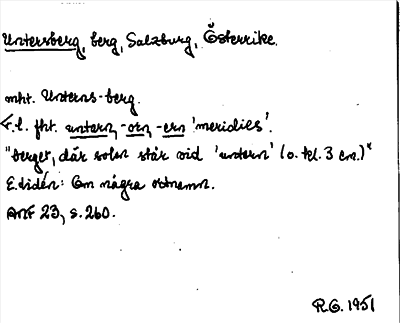 Untersberg, berg, Salzburg, Österrike.
mht. Unterns-berg.
F.l. fht. untern, -orn, -ern 'meridies'.
"berget, där solen står vid 'untern' (o. kl. 3 em.)"
E. Lidén: Om några ortnamn.
ANF 23, s. 260.
R.G. 1951